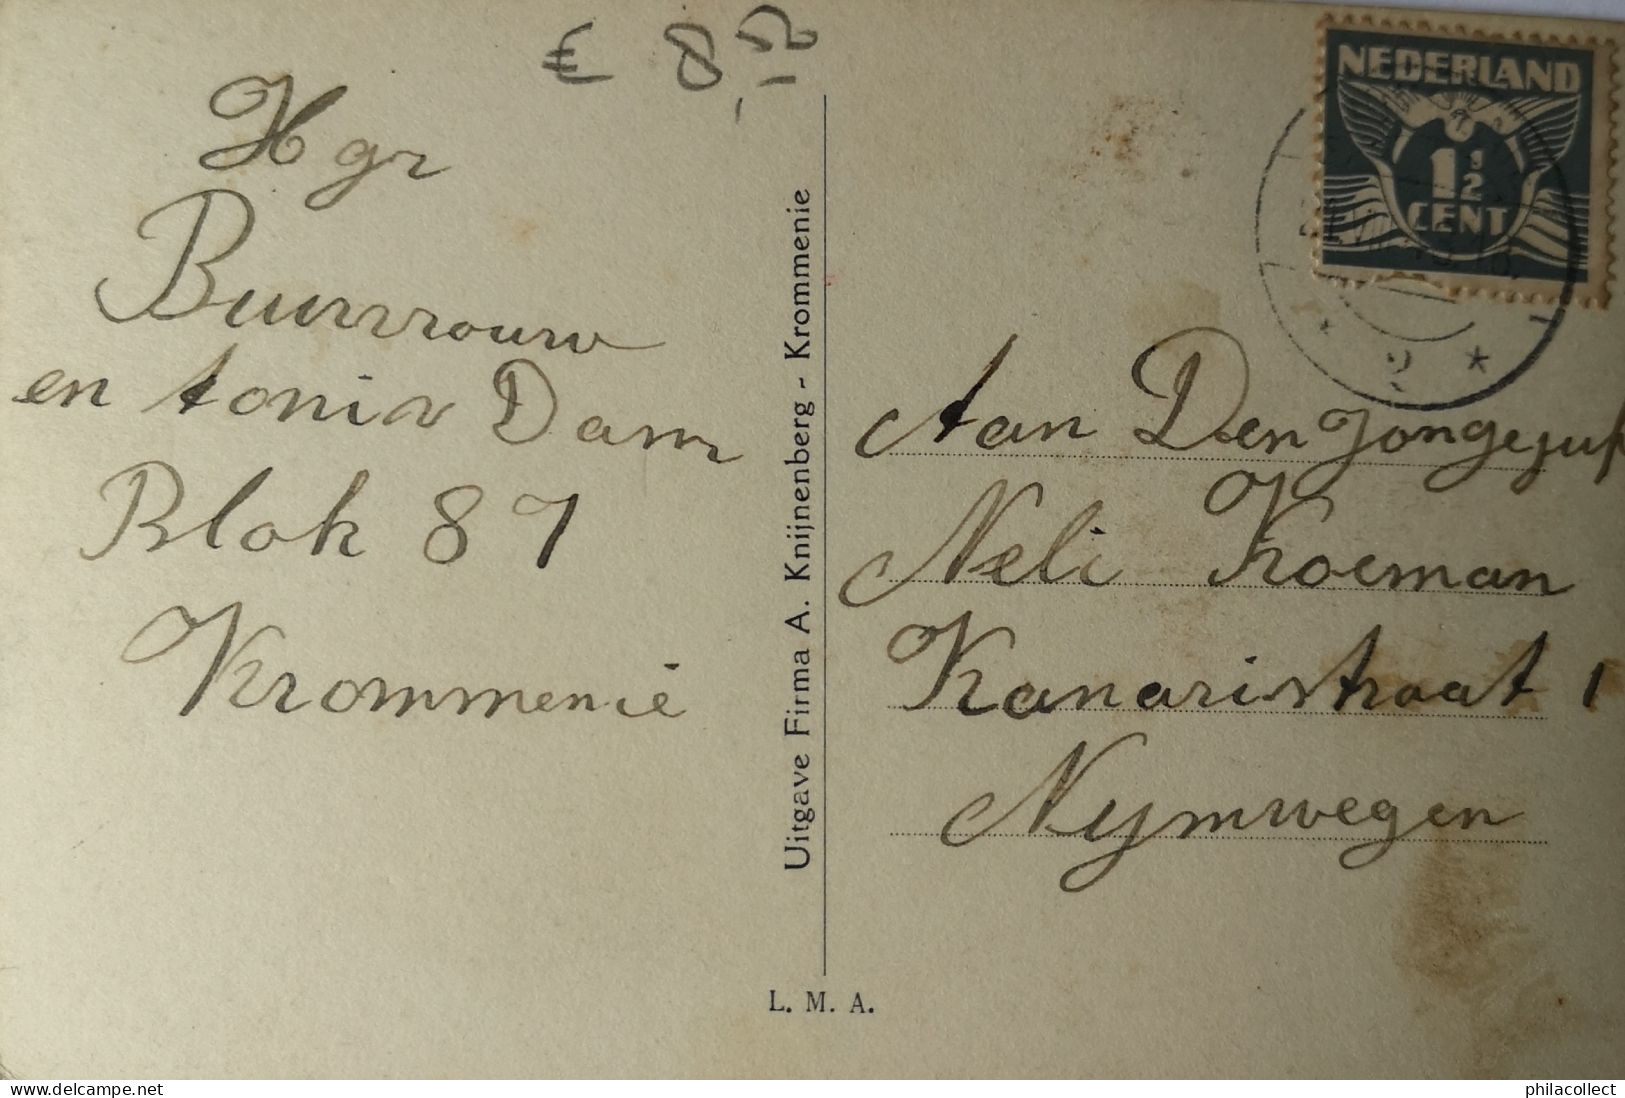 € 8,50
Hgr
Buurvrouw
en tonia Dam
Blok 87
Krommenie
Uitgave Firma A. Knijnenberg - Krommenie
L. M. A.
NEDERLAND
1 1/2
CENT
2
Aan Den Jongejuf
Neli Koeman
Kanaristraat 1
Nymwegen
delcampe.net
philacollect